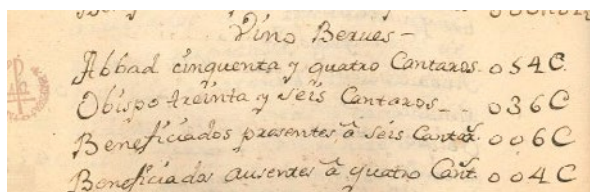 Vino Berues -
Abbad cinquenta y quatro Cantaros. 054C
Obispo treinta y seis Cantaros - - 036C
Beneficiados presentes, â seis Cantar. 006C
Beneficiados ausentes â quatro Cant. 004C